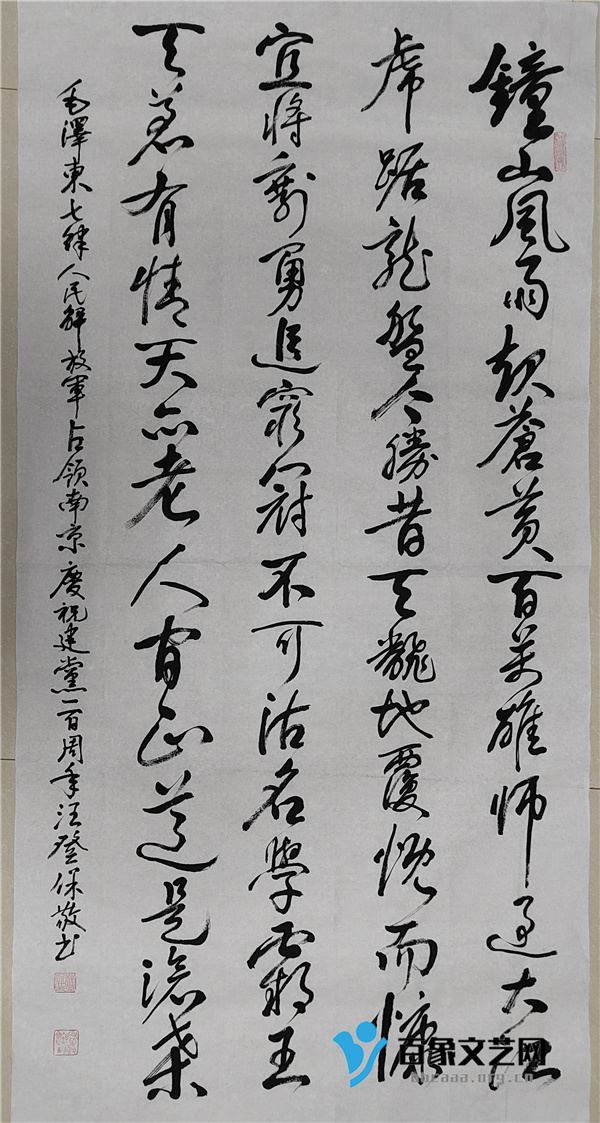 鐘山風雨起蒼黃百萬雄師過大江
虎踞龍盤今勝昔天翻地覆慨而慷
宜將剩勇追窮寇不可沽名學霸王
天若有情天亦老人間正道是滄桑
毛澤東七律人民解放軍占領南京慶祝建黨一百周年汪登保敬书
百象文艺网